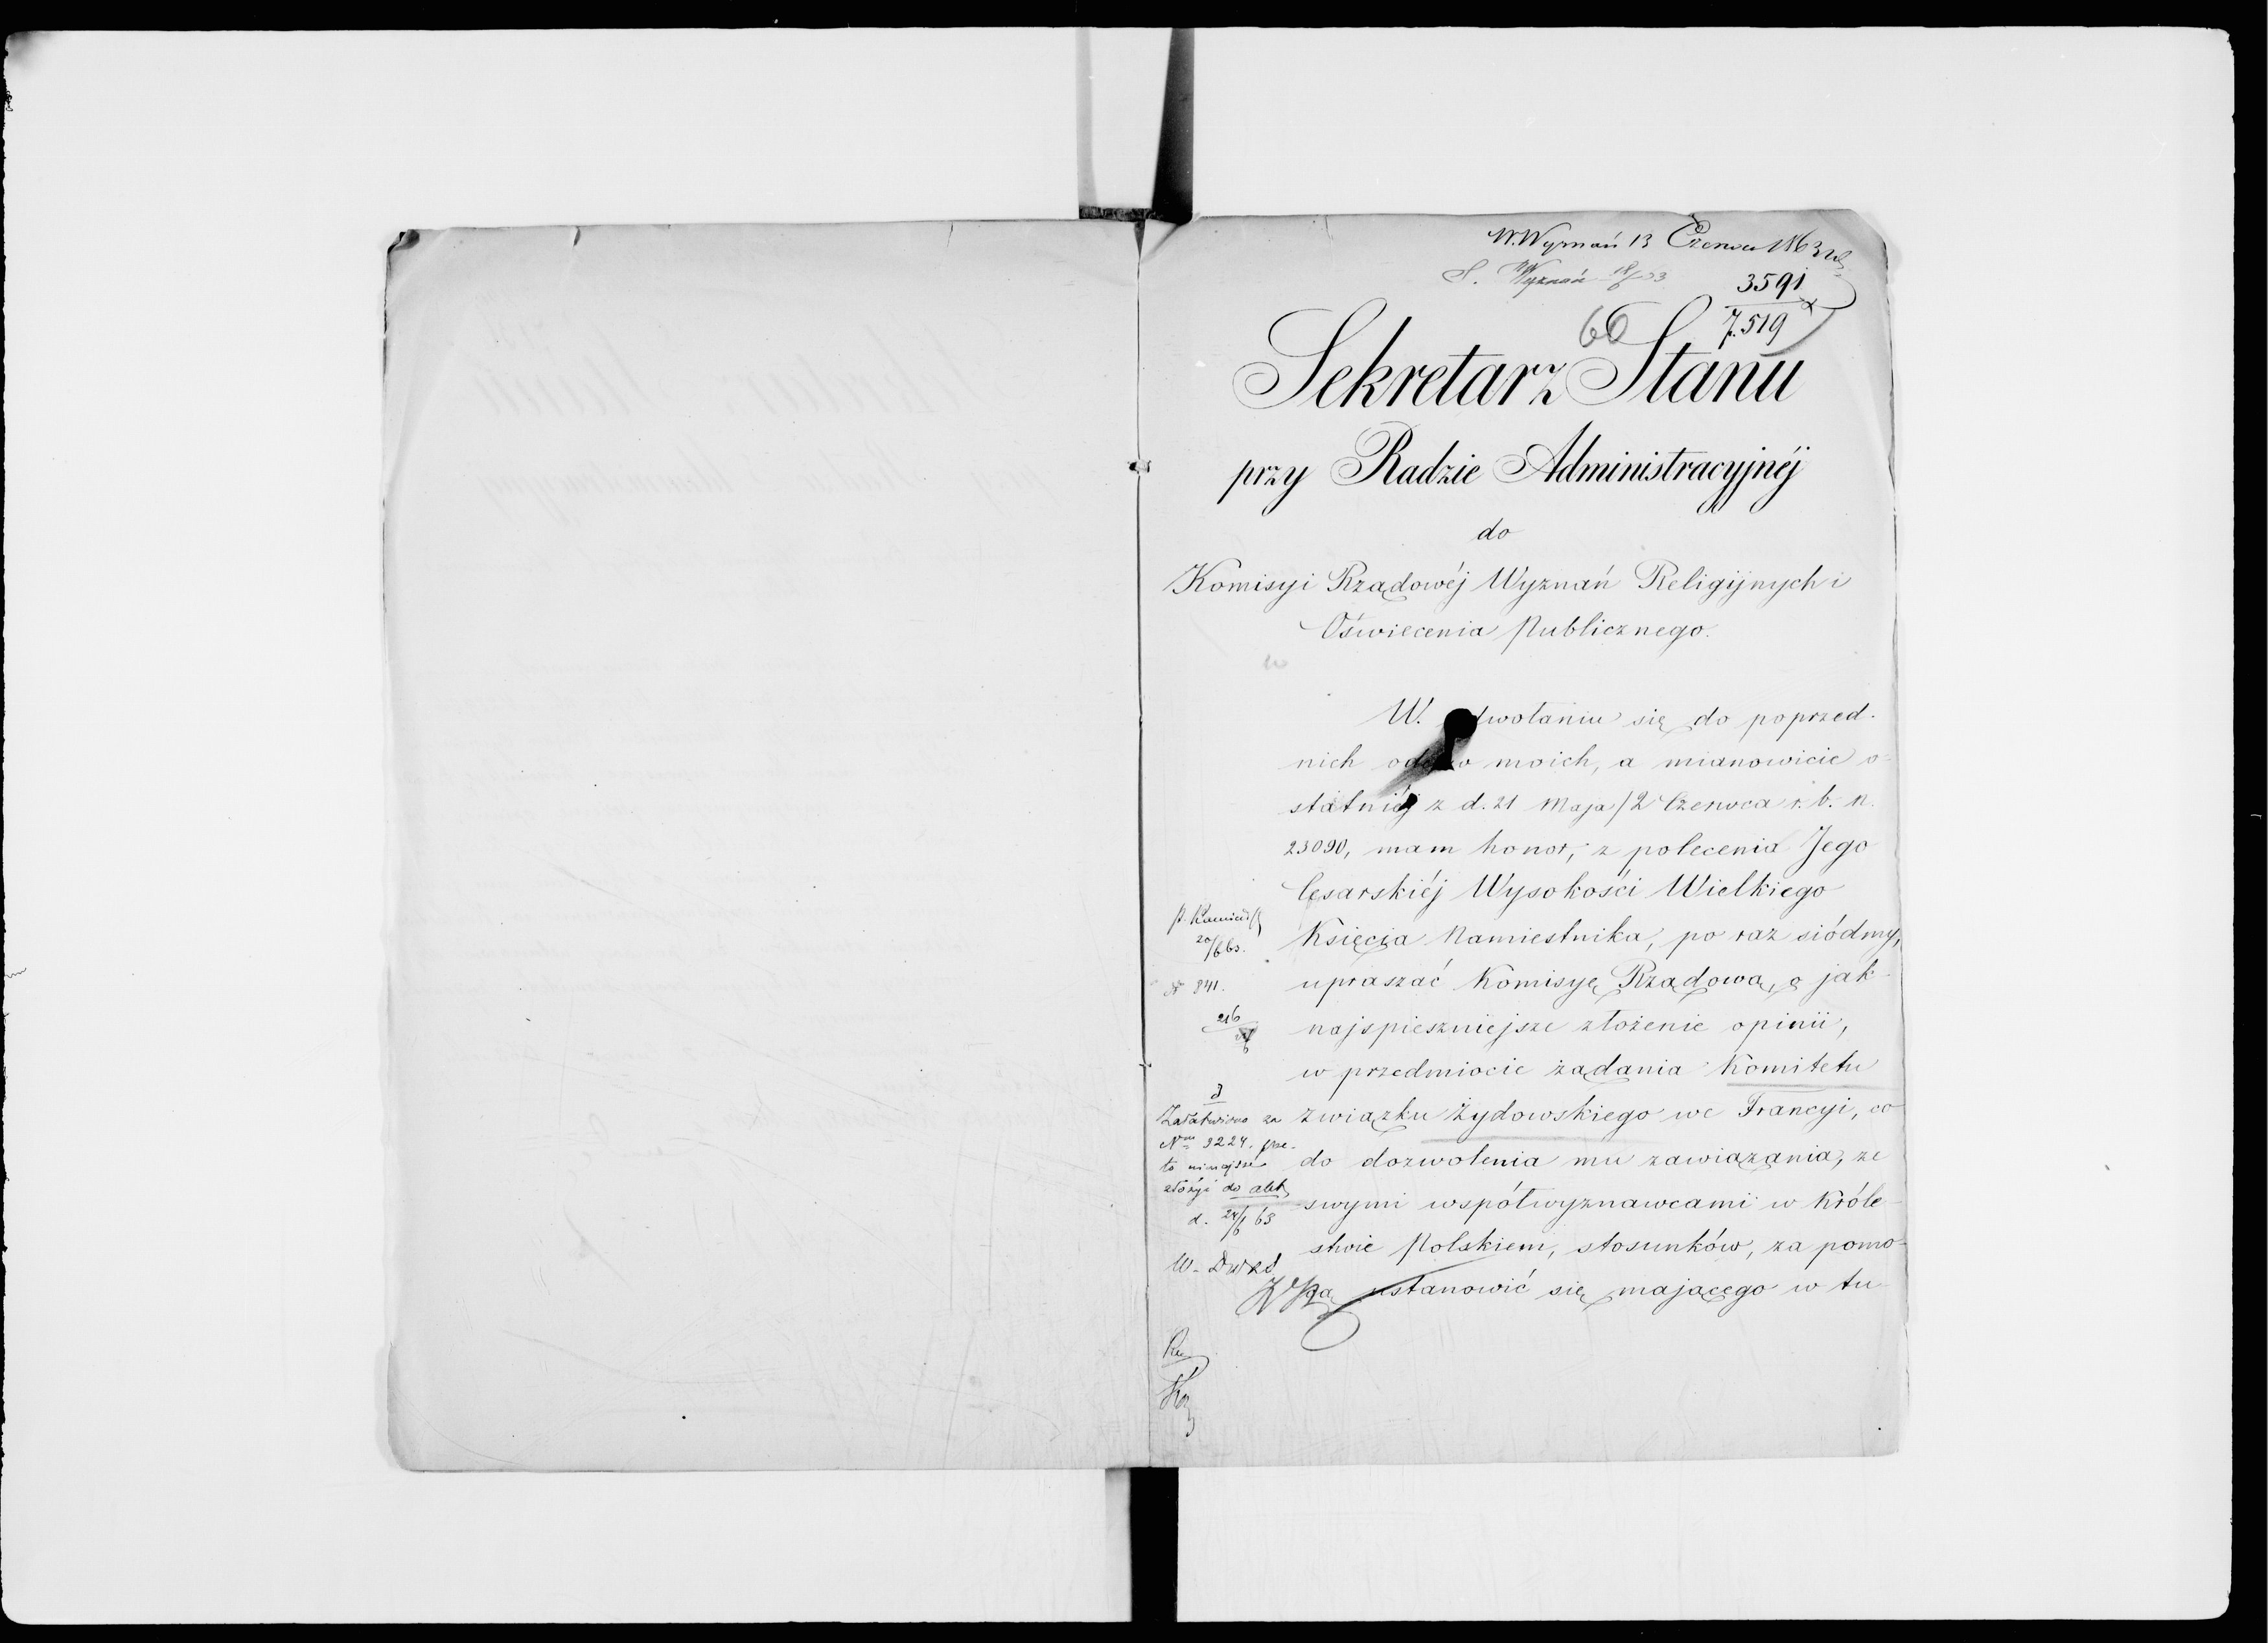 W. Wyznań 13 Czerwca 1863
S. Wyznań 18/6 63
3591
7.519
66
Sekretarz Stanu
przy Radzie Administracyjnéj
do
Komisyi Rządowéj Wyznań Religijnych i
Oświecenia Publicznego.
W. wołaniu się do poprzed-
nich moich, a mianowicie o-
statniéj z d. 21 Maja/2 Czerwca r. b. N.
23090, mam honor, z polecenia Jego
Cesarskiéj Wysokości Wielkiego
Księcia Namiestnika, po raz siódmy,
upraszać Komisyę Rządową, o jak-
najspieszniejsze złożenie opinii,
w przedmiocie żądania Komitetu
związku Żydowskiego we Francyi, co
do dozwolenia mu zawiązania, ze
swymi współwyznawcami w Króle-
stwie Polskiem, stosunków, za pomo-
cą ustanowić się mającego w tu-
20/6 63.
N 841.
216
Załatwiono za
Nrm 3224. prze-
to niniejsze
złożyć do akt
d. 24/6 63